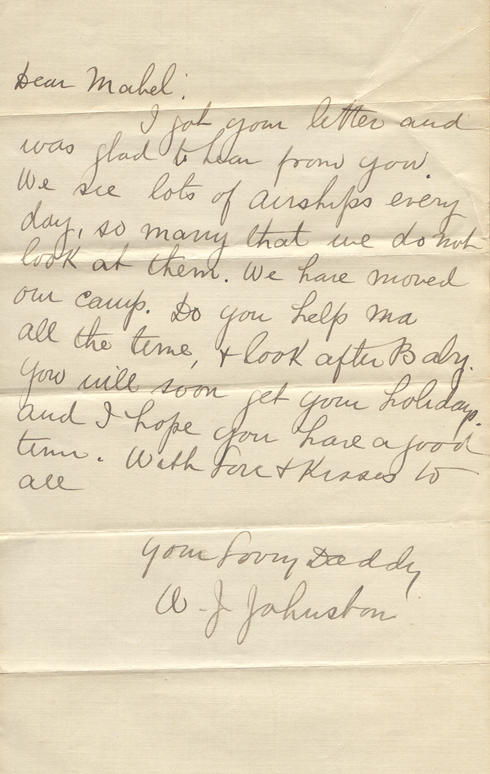 Dear Mabel:
I got your letter and
was glad to hear from you.
We see lots of airships every
day, so many that we do not
look at them. We have moved
our camp. Do you help ma
all the time, & look after Baby.
you will soon get your holidays.
and I hope you have a good
time. With Love & Kisses to
all
your Loving Daddy
W. J. Johnston